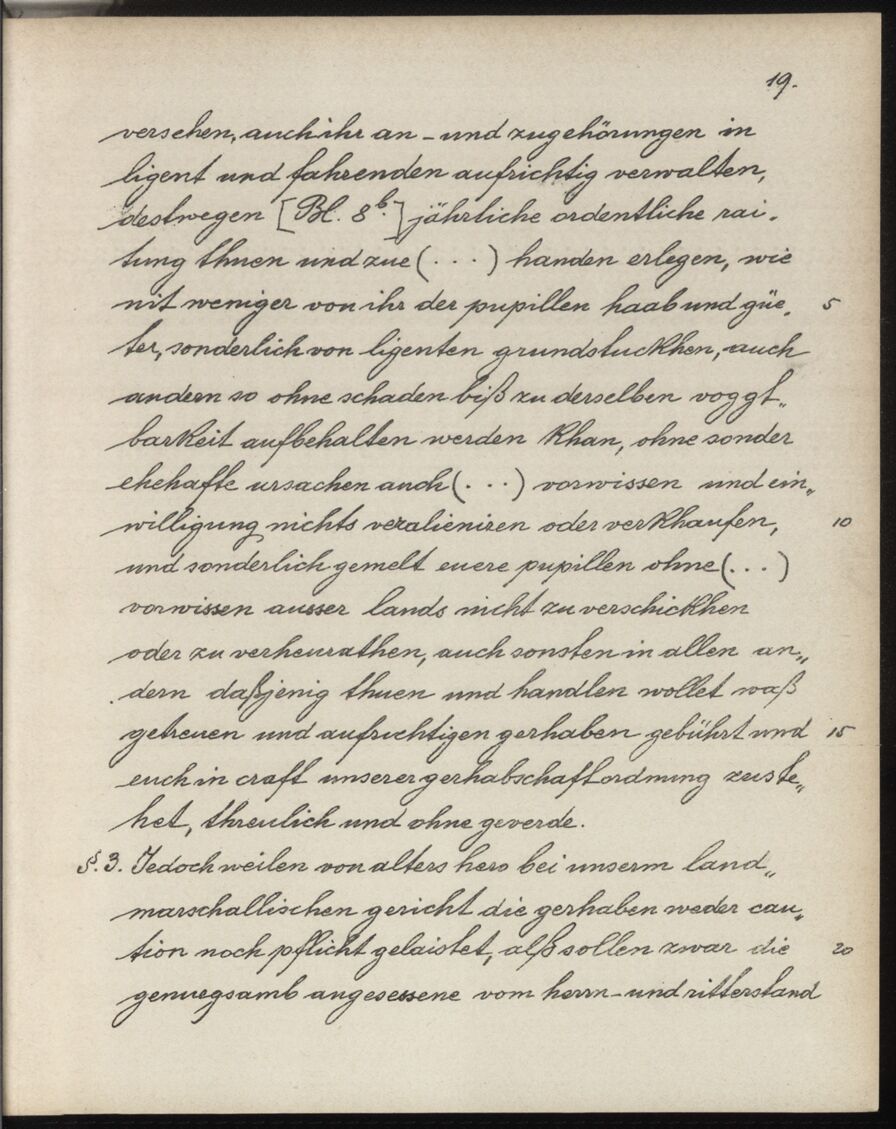 19.
versehen, auch ihr an- und zugehörungen in
ligent und fahrenden aufrichtig verwalten,
destwegen [Bl. 8b.] jährliche ordentliche rai„
tung thuen und zue (. . .) handen erlegen, wie
nit weniger von ihr der pupillen haab und güe„ 5
ter, sonderlich von ligenten grundstuckhen, auch
andern so ohne schaden biß zu derselben voggt„
barkeit aufbehalten werden khan, ohne sonder
ehehafte ursachen auch (. . .) vorwissen und ein„
willigung nichts veralieniren oder verkhaufen, 10
und sonderlich gemelt euere pupillen ohne (. . .)
vorwissen ausser lands nicht zu verschickhen
oder zu verheurathen, auch sonsten in allen an„
dern daßjenig thuen und handlen wollet waß
getreuen und aufrichtigen gerhaben gebührt und 15
euch in craft unserer gerhabschaftordnung zuste„
het, threulich und ohne geverde.
§. 3. Jedoch weilen von alters hero bei unserm land„
marschallischen gericht die gerhaben weder cau„
tion noch pflicht gelaistet, alß sollen zwar die 20
genuegsamb angesessene vom herrn- und ritterstand